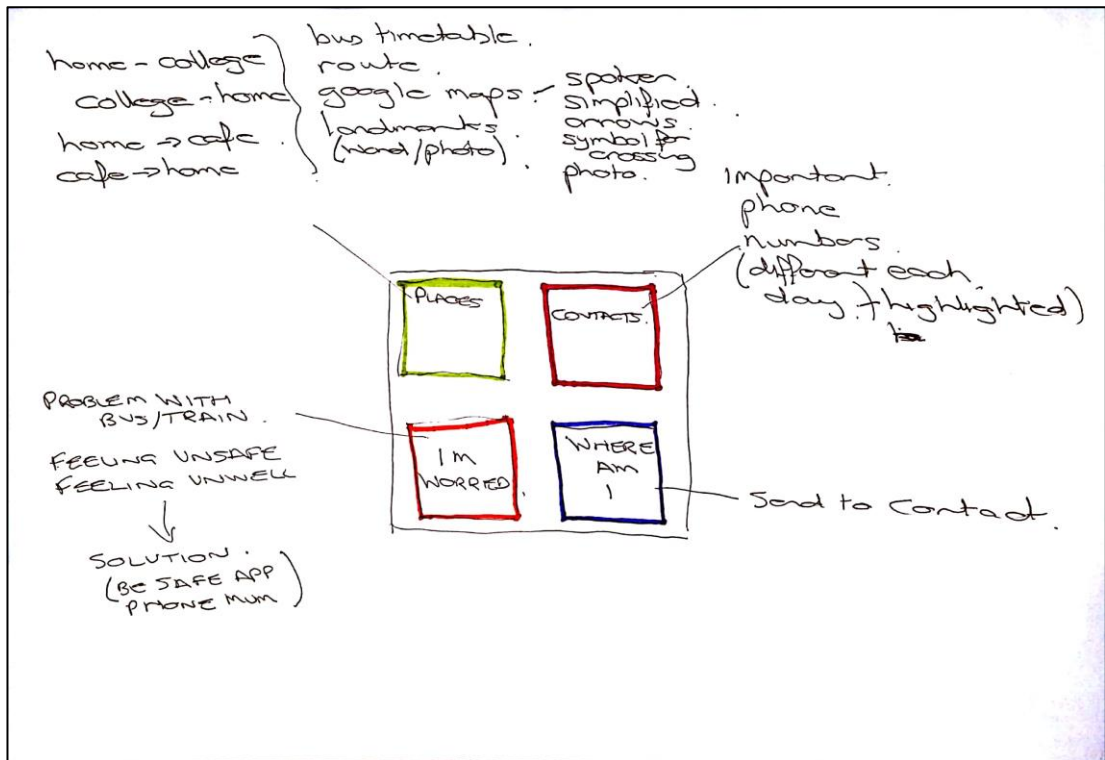 home - college
college - home
home → cafe
cafe → home
bus timetable.
route.
google maps.
landmarks
(word/photo).
spoken
simplified.
arrows.
symbol for
crossing
photo.
important
phone
numbers
(different each
day. + highlighted)
PLACES
CONTACTS.
I'M
WORRIED.
WHERE
AM
I
PROBLEM WITH
BUS/TRAIN.
FEELING UNSAFE
FEELING UNWELL
SOLUTION.
(BE SAFE APP
PHONE MUM)
Send to contact.